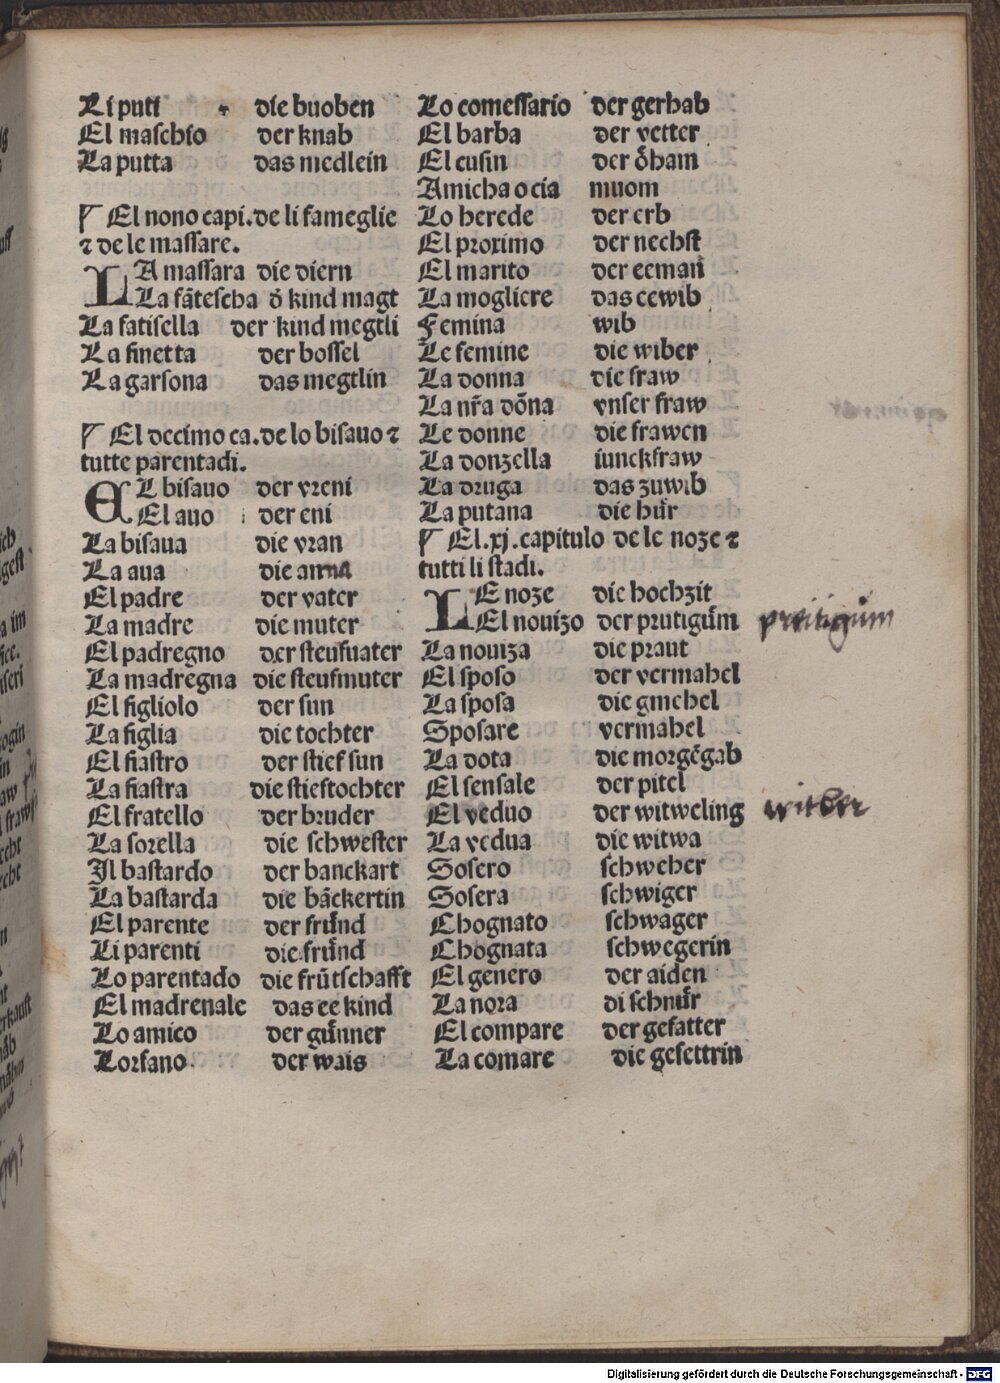 Li puti die buoben
El maschio der knab
La putta das medlein
¶ El nono capi. de li fameglie
⁊ de le massare.
LA massara die diern
La fātescha ď kind magt
La fatisella der kind megtli
La finetta der bossel
La garsona das megtlin
¶ El decimo ca. de lo bisauo ⁊
tutte parentadi.
EL bisauo der vreni
El auo der eni
La bisaua die vran
La aua die anna
El padre der vater
La madre die muter
El padregno der steufuater
La madregna die steufmuter
El figliolo der sun
La figlia die tochter
El fiastro der stief sun
La fiastra die stieftochter
El fratello der bruder
La sorella die schwester
Il bastardo der banckart
La bastarda die bāckertin
El parente der frůnd
Li parenti die frůnd
Lo parentado die frūtschafft
El madrenale das ee kind
Lo amico der gůnner
Lorfano der wais
Lo comessario der gerhab
El barba der vetter
El cusin der ôham
Amicha o cia muom
Lo herede der erb
El proximo der nechst
El marito der eeman̄
La mogliere das eewib
Femina wib
Le femine die wiber
La donna die fraw
La nr̄a dōna vnser fraw
Le donne die frawen
La donzella iunckfraw
La druga das zuwib
La putana die hůr
¶ El .xj. capitulo de le noze ⁊
tutti li stadi.
LE noze die hochzit
El nouizo der prutigům
La nouiza die praut
El sposo der vermahel
La sposa die gmehel
Sposare vermahel
La dota die morgēgab
El sensale der pitel
El veduo der witweling
La vedua die witwa
Sosero schweher
Sosera schwiger
Chognato schwager
Chognata schwegerin
El genero der aiden
La nora di schnůr
El compare der gefatter
La comare die gefettrin
preitigum
witber
Digitalisierung gefördert durch die Deutsche Forschungsgemeinschaft - DFG